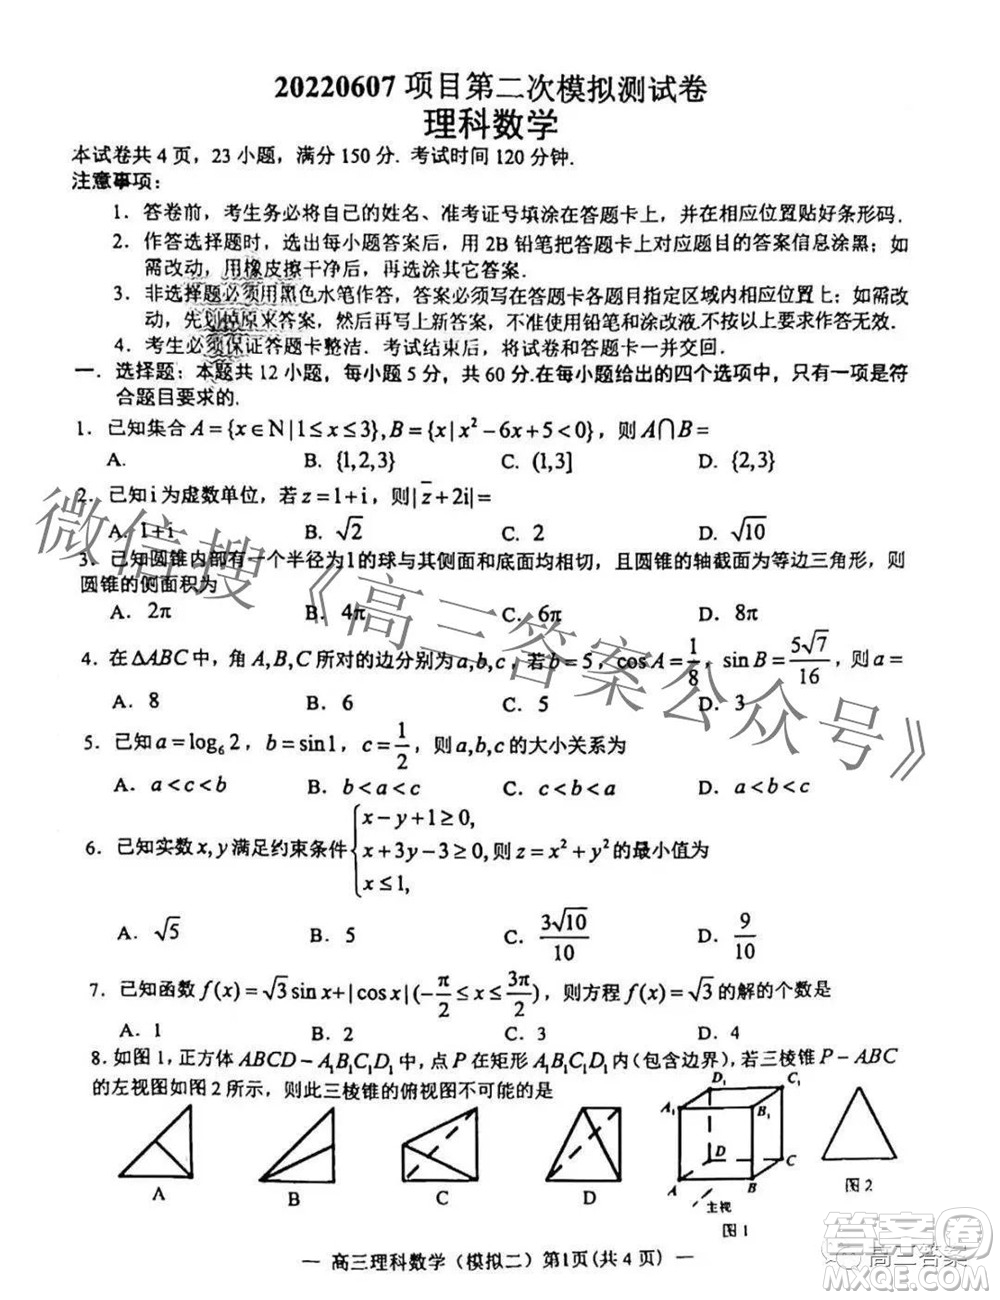 20220607 项目第二次模拟测试卷
理科数学
本试卷共 4 页，23 小题，满分 150 分. 考试时间 120 分钟.
注意事项：
1．答卷前，考生务必将自己的姓名、准考证号填涂在答题卡上，并在相应位置贴好条形码.
2．作答选择题时，选出每小题答案后，用 2B 铅笔把答题卡上对应题目的答案信息涂黑；如
需改动，用橡皮擦干净后，再选涂其它答案.
3．非选择题必须用黑色水笔作答，答案必须写在答题卡各题目指定区域内相应位置上；如需改
动，先划掉原来答案，然后再写上新答案，不准使用铅笔和涂改液.不按以上要求作答无效.
4．考生必须保证答题卡整洁. 考试结束后，将试卷和答题卡一并交回.
一．选择题：本题共 12 小题，每小题 5 分，共 60 分.在每小题给出的四个选项中，只有一项是符
合题目要求的.
1．已知集合 A={x∈N|1≤x≤3},B={x|x²−6x+5<0}，则 A∩B=
A. B. {1,2,3} C. (1,3] D. {2,3}
2．已知 i 为虚数单位，若 z=1+i，则|z̅+2i|=
A. 1+i B. √2 C. 2 D. √10
3．已知圆锥内部有一个半径为1的球与其侧面和底面均相切，且圆锥的轴截面为等边三角形，则
圆锥的侧面积为
A．2π B．4π C．6π D．8π
4．在 ΔABC 中，角 A,B,C 所对的边分别为 a,b,c，若 b=5，cosA=1/8，sinB=5√7/16，则 a=
A．8 B．6 C．5 D．3
5．已知 a=log₆2，b=sin1，c=1/2，则 a,b,c 的大小关系为
A．a<c<b B．b<a<c C．c<b<a D．a<b<c
6．已知实数 x,y 满足约束条件{x−y+1≥0, x+3y−3≥0, x≤1, 则 z=x²+y² 的最小值为
A．√5 B．5 C．3√10/10 D．9/10
7．已知函数 f(x)=√3sinx+|cosx|(−π/2≤x≤3π/2)，则方程 f(x)=√3 的解的个数是
A．1 B．2 C．3 D．4
8.如图 1，正方体 ABCD−A₁B₁C₁D₁ 中，点 P 在矩形 A₁B₁C₁D₁ 内（包含边界），若三棱锥 P−ABC
的左视图如图 2 所示，则此三棱锥的俯视图不可能的是
A B C D
D₁ C₁ A₁ B₁ D C A B
主视
图 1
图 2
— 高三理科数学（模拟二）第1页(共 4 页) —
微信搜《高三答案公众号》
答案圈
MXQE.COM
高三答案